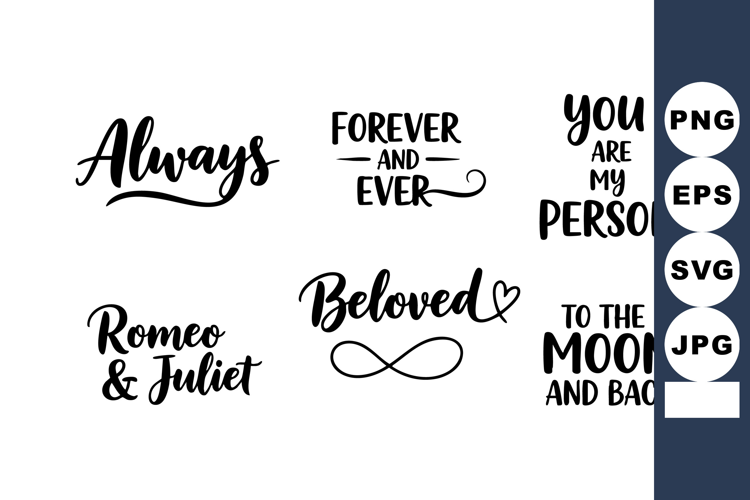 Always
FOREVER
AND
EVER
YOU
ARE
MY
PERSO
Romeo
& Juliet
Beloved
TO THE
MOON
AND BAC
PNG
EPS
SVG
JPG